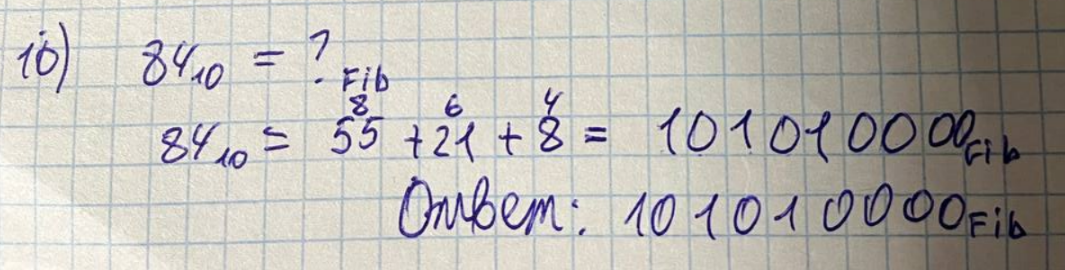 10) 84₁₀ = ?Fib
8 6 4
84₁₀ = 55 + 21 + 8 = 101010000Fib
Ответ: 101010000Fib